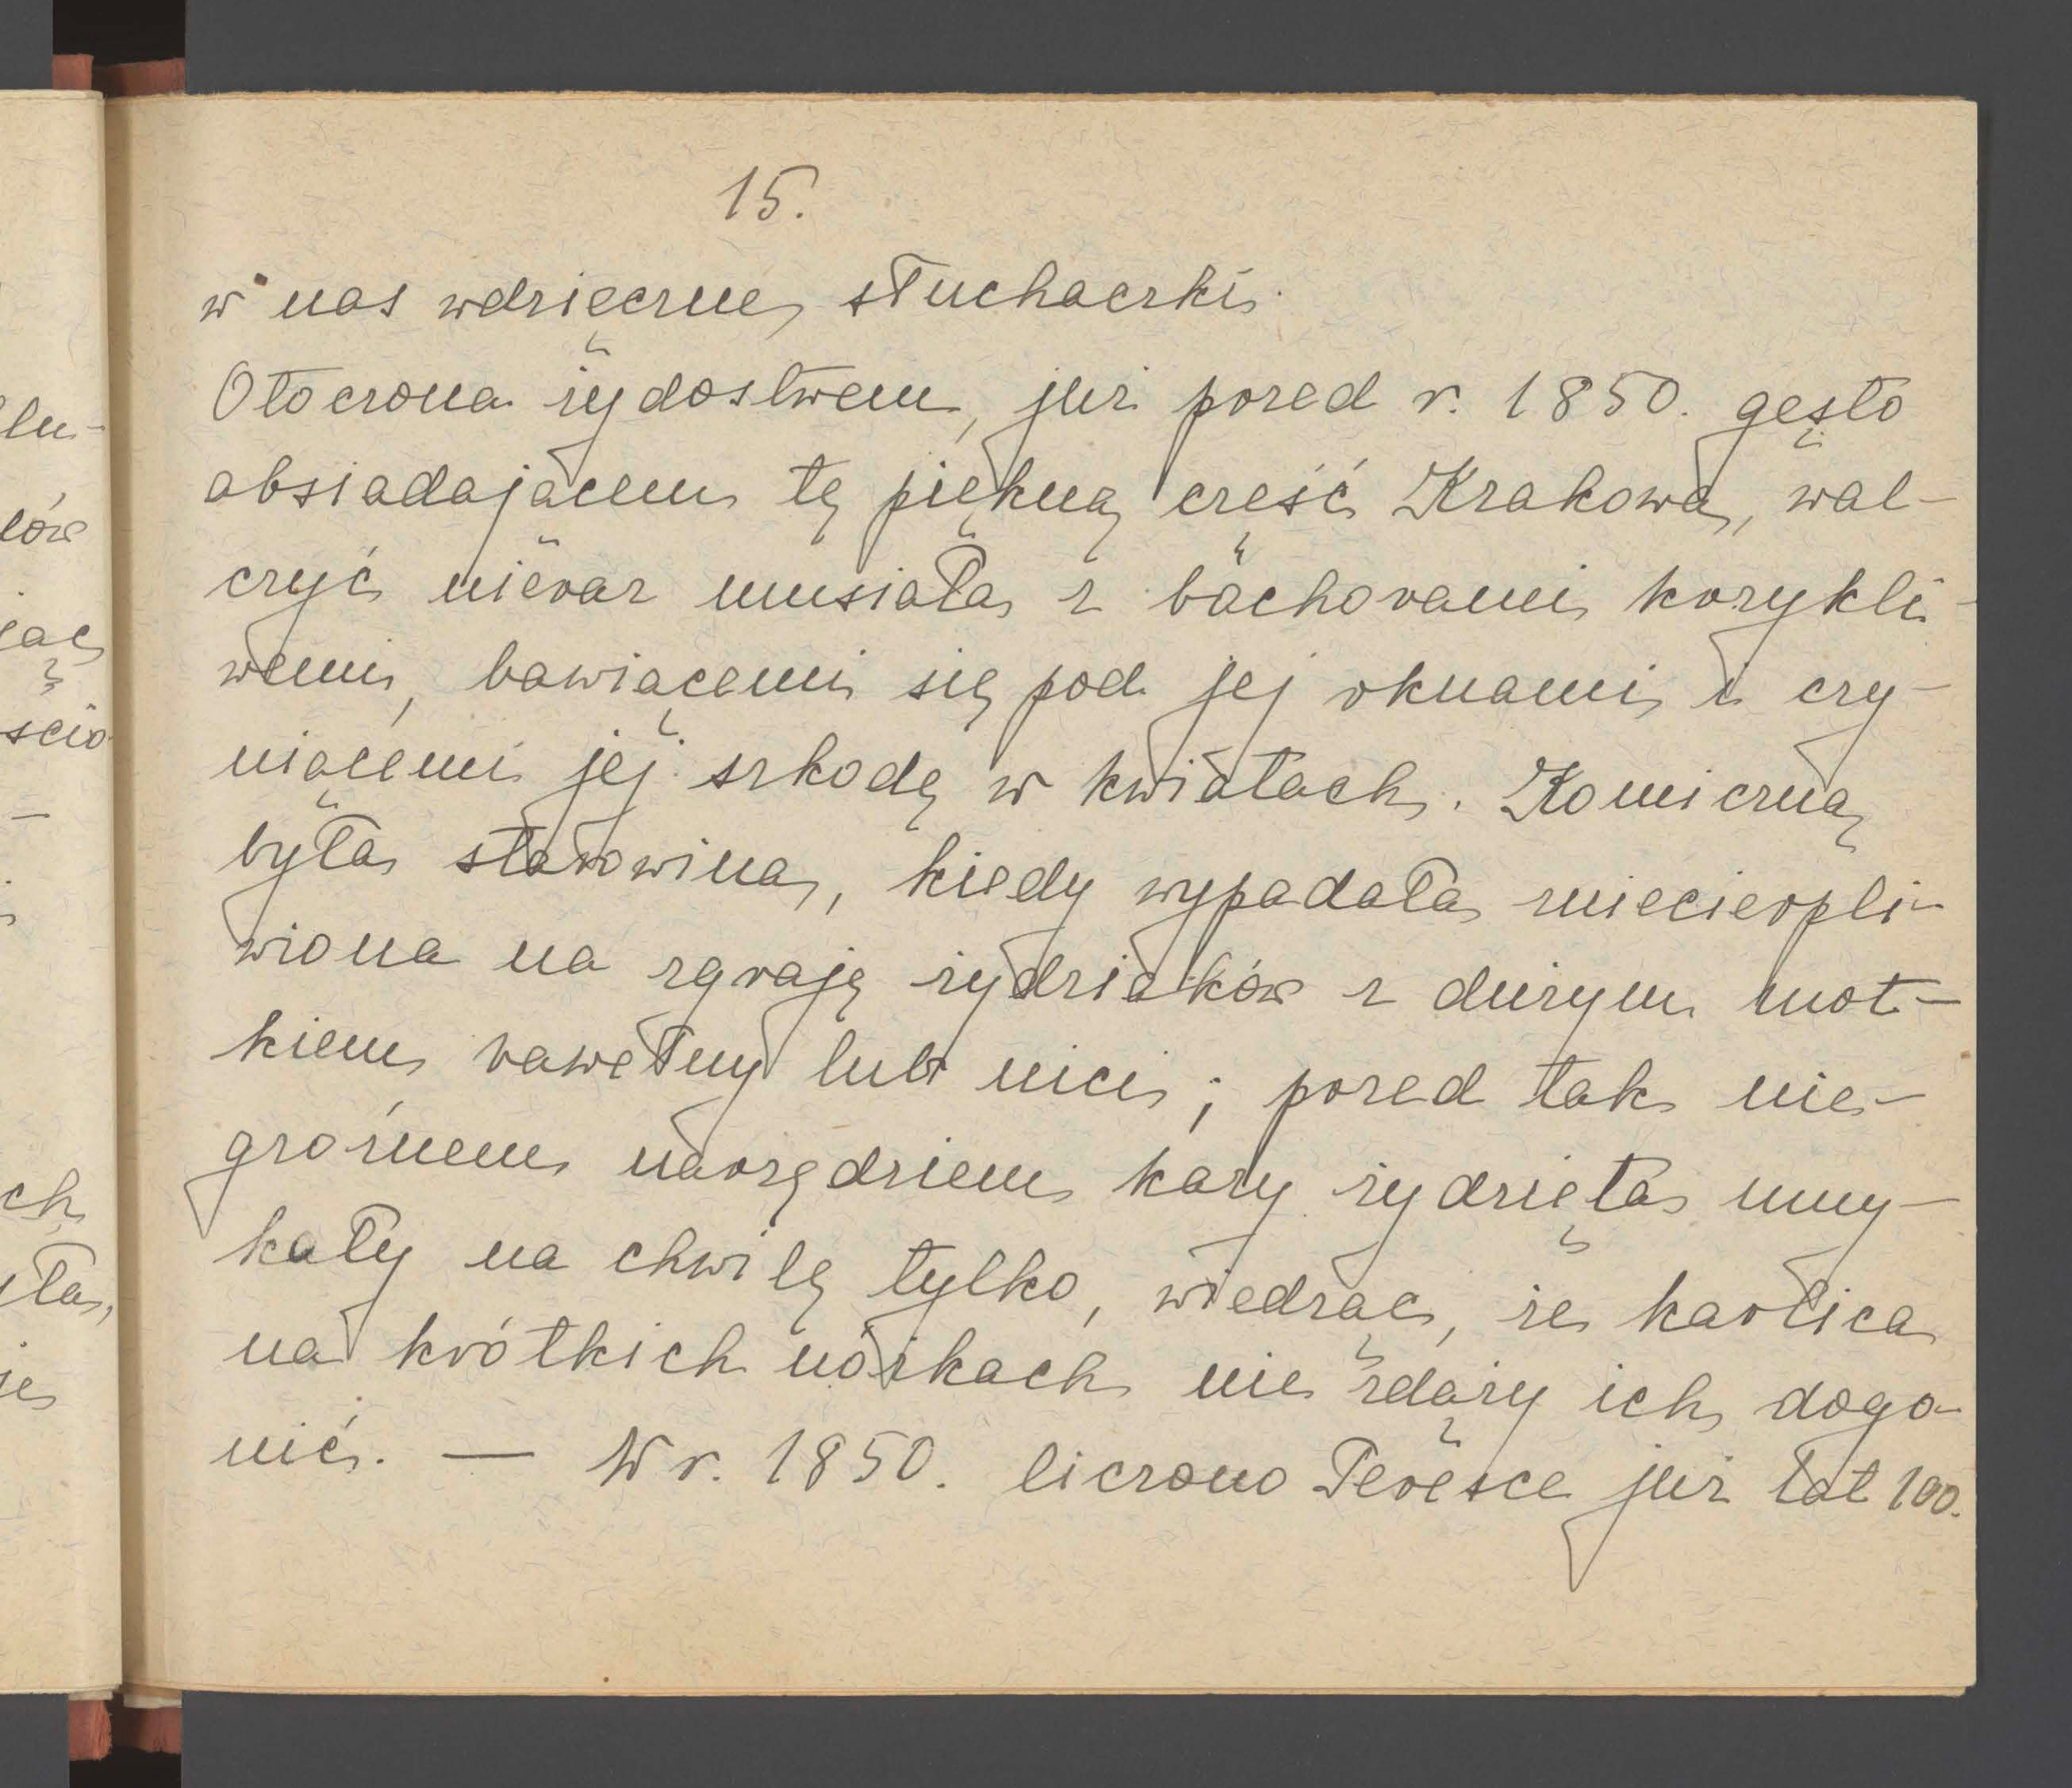 15.
w nas wdzięczne słuchaczki.
Otoczona żydostwem, już przed r. 1850. gęsto
obsiadającem tę piękną część Krakowa, wal-
czyć nieraz musiała z bachorami krzykli-
wemi, bawiącemi się pod jej oknami i czy-
niącemi jej szkodę w kwiatach. Komiczną
była starowina, kiedy wypadała zniecierpli-
wiona na zgraję żydziaków z dużym mot-
kiem bawełny lub nici; przed tak nie-
groźnem narzędziem kary żydzięta umy-
kały na chwilę tylko, wiedząc, że karlica
na krótkich nóżkach nie zdąży ich dogo-
nić. — W r. 1850. liczono Teresce już lat 100.
lu-
łów
jąc
ścio
-
ch
ła,
je